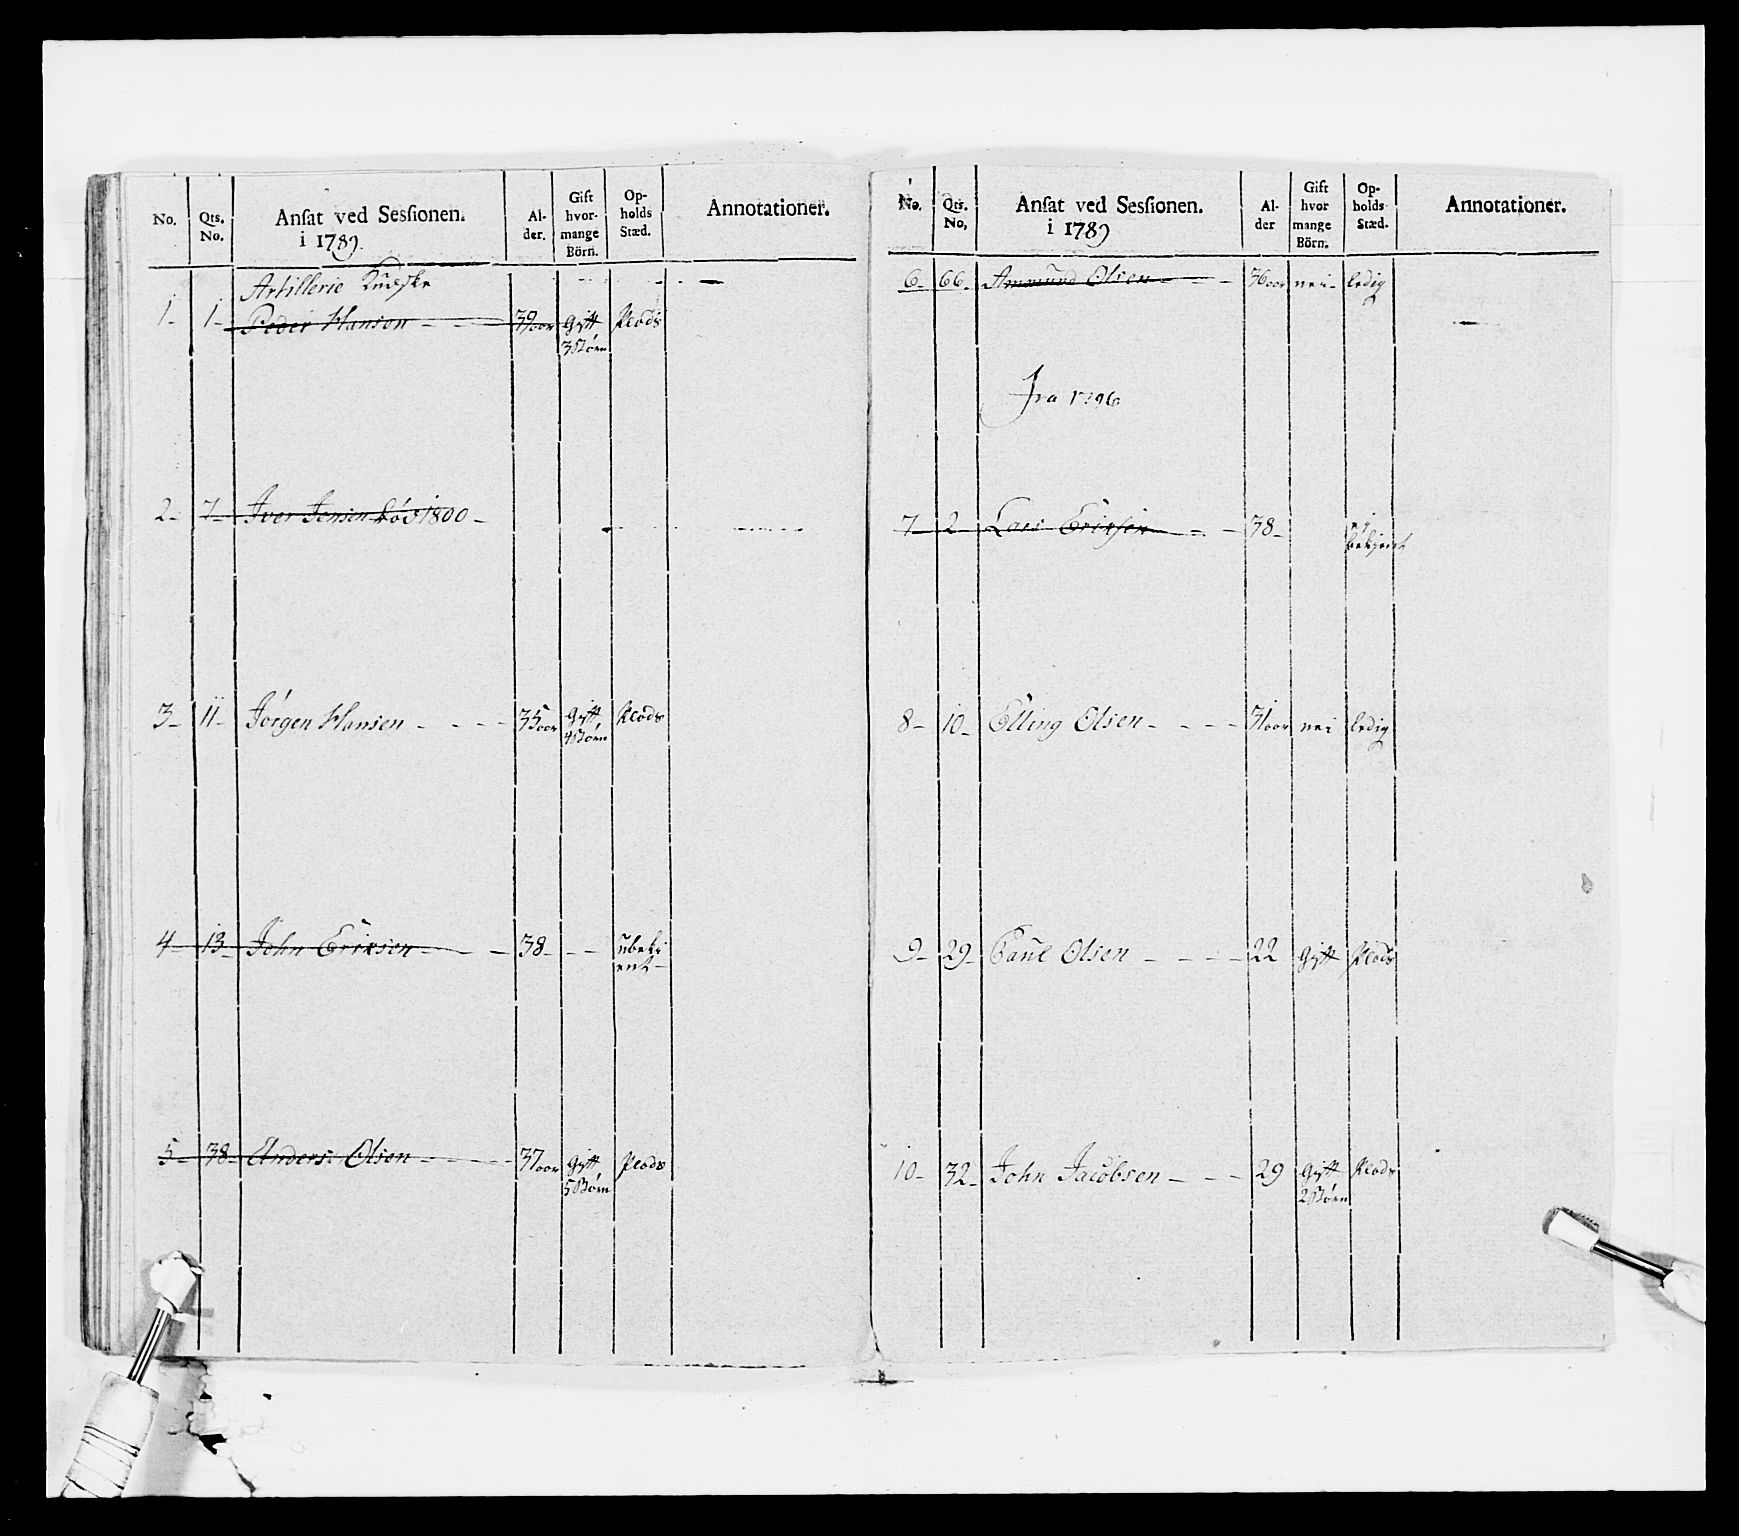 No. Qts. No. Ansat ved Sessionen. i 1789. Al- der. Gift hvor- mange Börn. Op- holds Stæd. Annotationer.
Artillerie Kudske
1- 1- Peder Hansen - - - 39 aar Gift 3 Børn Plads
2- 7- Iver Jensen død 1800 -
3- 11- Jørgen Hansen - - - - 35 aar Gift 4 Børn Plads
4- 13- John Erixsen - - - 38- - - ubeki ent-
5- 38- Anders Olsen - - - - 37 aar Gift 5 Børn Plads
No. Qts. No, Ansat ved Sessionen. i 1789 Al- der Gift hvor mange Börn. Op- holds Stæd. Annotationer.
6- 66- Ammund Olsen - - - 36 aar nei- ledig
Fra 1796
7- 2- Lars Erixsen - - - 38-
8- 10- Elling Olsen - - - - 31 aar nei ledig
9- 29- Paul Olsen - - - - 22 Gift Plads
10- 32- John Jacobsen - - - 29 Gift 2 Børn Plads